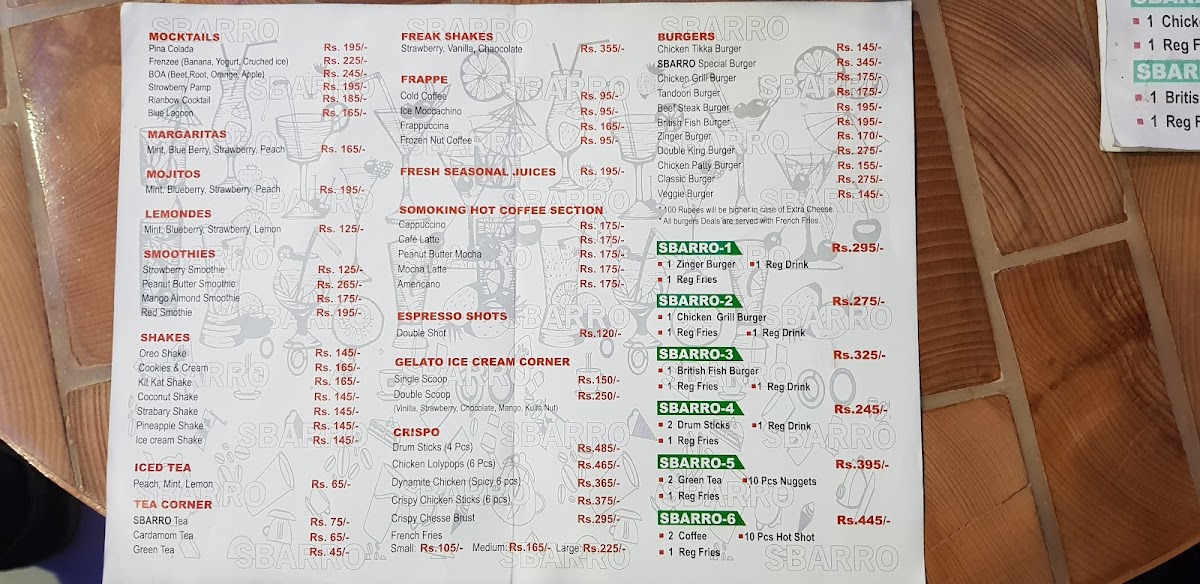 MOCKTAILS
Pina Colada Rs. 195/-
Frenzee (Banana, Yogurt, Cruched ice) Rs. 225/-
BOA (Beet,Root, Orange, Apple) Rs. 245/-
Strowberry Pamp Rs. 195/-
Rianbow Cocktail Rs. 185/-
Blue Lagoon Rs. 165/-
MARGARITAS
Mint, Blue Berry, Strawberry, Peach Rs. 165/-
MOJITOS
Mint, Blueberry, Strawberry, Peach Rs. 195/-
LEMONDES
Mint, Blueberry, Strawberry, Lemon Rs. 125/-
SMOOTHIES
Strowberry Smoothie Rs. 125/-
Peanut Butter Smoothie Rs. 265/-
Mango Almond Smoothie Rs. 175/-
Red Smothie Rs. 195/-
SHAKES
Oreo Shake Rs. 145/-
Cookies & Cream Rs. 165/-
Kit Kat Shake Rs. 165/-
Coconut Shake Rs. 145/-
Strabary Shake Rs. 145/-
Pineapple Shake Rs. 145/-
Ice cream Shake Rs. 145/-
ICED TEA
Peach, Mint, Lemon Rs. 65/-
TEA CORNER
SBARRO Tea Rs. 75/-
Cardamom Tea Rs. 65/-
Green Tea Rs. 45/-
FREAK SHAKES
Strawberry, Vanilla, Chaocolate Rs. 355/-
FRAPPE
Cold Coffee Rs. 95/-
Ice Moccachino Rs. 95/-
Frappuccina Rs. 165/-
Frozen Nut Coffee Rs. 95/-
FRESH SEASONAL JUICES Rs. 195/-
SOMOKING HOT COFFEE SECTION
Cappuccino Rs. 175/-
Café Latte Rs. 175/-
Peanut Butter Mocha Rs. 175/-
Mocha Latte Rs. 175/-
Americano Rs. 175/-
ESPRESSO SHOTS
Double Shot Rs.120/-
GELATO ICE CREAM CORNER
Single Scoop Rs.150/-
Double Scoop Rs.250/-
(Vinilla, Strawberry, Chocolate, Mango, Kulfa Nut)
CRISPO
Drum Sticks (4 Pcs) Rs.485/-
Chicken Lolypops (6 Pcs) Rs.465/-
Dynamite Chicken (Spicy 6 pcs) Rs.365/-
Crispy Chicken Sticks (6 pcs) Rs.375/-
Crispy Chesse Brust Rs.295/-
French Fries
Small: Rs.105/- Medium: Rs.165/- Large: Rs.225/-
BURGERS
Chicken Tikka Burger Rs. 145/-
SBARRO Special Burger Rs. 345/-
Chicken Grill Burger Rs. 175/-
Tandoori Burger Rs. 175/-
Beef Steak Burger Rs. 195/-
British Fish Burger Rs. 195/-
Zinger Burger Rs. 170/-
Double King Burger Rs. 275/-
Chicken Patty Burger Rs. 155/-
Classic Burger Rs. 275/-
Veggie Burger Rs. 145/-
* 100 Rupees will be higher in case of Extra Cheese.
* All burgers Deals are served with French Fries.
SBARRO-1 Rs.295/-
1 Zinger Burger 1 Reg Drink
1 Reg Fries
SBARRO-2 Rs.275/-
1 Chicken Grill Burger
1 Reg Fries 1 Reg Drink
SBARRO-3 Rs.325/-
1 British Fish Burger
1 Reg Fries 1 Reg Drink
SBARRO-4 Rs.245/-
2 Drum Sticks 1 Reg Drink
1 Reg Fries
SBARRO-5 Rs.395/-
2 Green Tea 10 Pcs Nuggets
1 Reg Fries
SBARRO-6 Rs.445/-
2 Coffee 10 Pcs Hot Shot
1 Reg Fries
1 Chick
1 Reg F
SBAR
1 Britis
1 Reg F